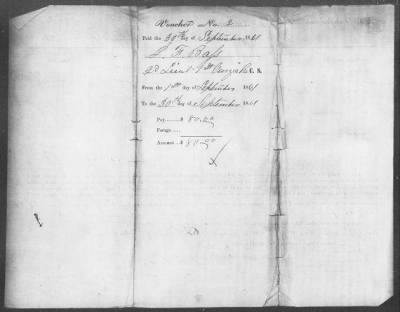 Voucher No. 2
Paid the 30th day of September 1861
L. F. Bass
2d Lieut C. S.
From the 1st day of September 1861
To the 30th day of September 1861
Pay......$ 80.00
Forage....
Amount...$ 80.00